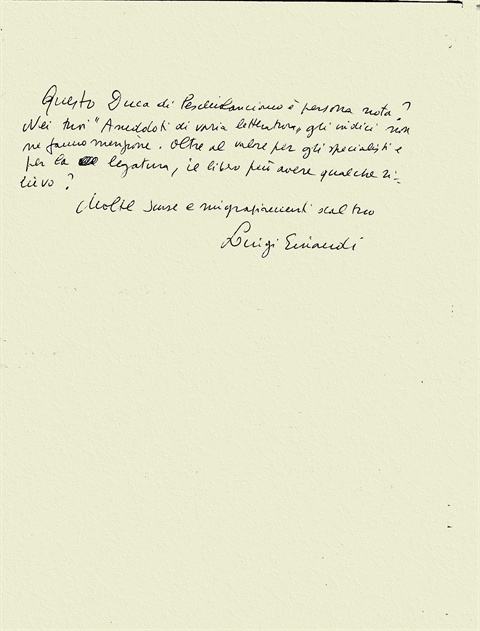 Questo Duca di Pescolanciano è persona nota?
Nei tuoi "Aneddoti di varia letteratura" gli indici non
ne fanno menzione. Oltre al valore per gli specialisti e
per la legatura, il libro può avere qualche ri-
lievo?
Molte scuse e ringraziamenti dal tuo
Luigi Einaudi